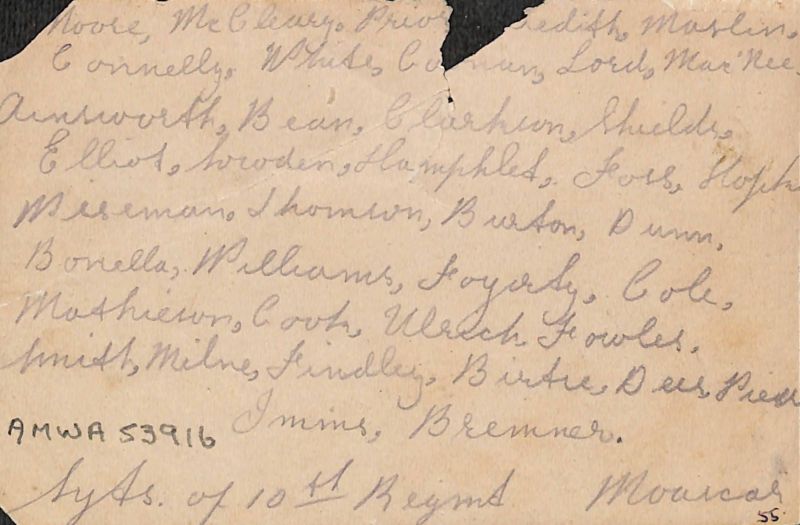 Moore, McCleary, Prior edith, Maslin,
Connelly, White, Lord, MacNee
Ainsworth, Bean, Clarkson, Shields,
Elliot, Lowden, Hamphlet, Foss,
Wiseman, Thomson, Burton, Dunn,
Bonella, Williams, Fogerty, Cole,
Mathieson, Cook, Ulrich Fowles,
Smith, Milne, Findley, Birtie, Dees
Imms, Bremner.
AMWA 53916
Sgts. of 10th Regmt Moascar
55